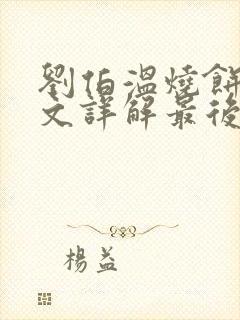 劉伯溫燒餅
文詳解最後
楊益